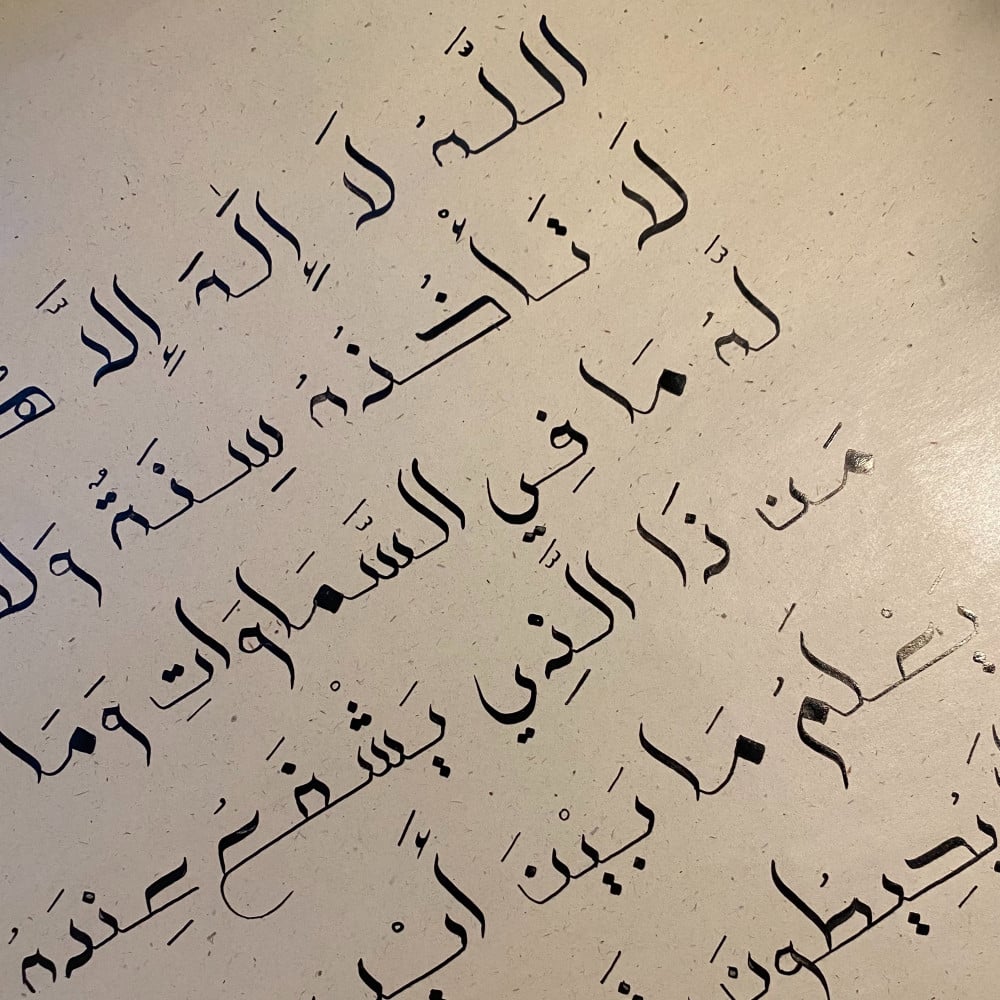 اللَّهُ لَا إِلَٰهَ إِلَّا
لَا تَأْخُذُهُ سِنَةٌ وَلَا
لَّهُ مَا فِي السَّمَاوَاتِ وَمَا
مَن ذَا الَّذِي يَشْفَعُ عِندَهُ
يَعْلَمُ مَا بَيْنَ أَيْ
يُحِيطُونَ